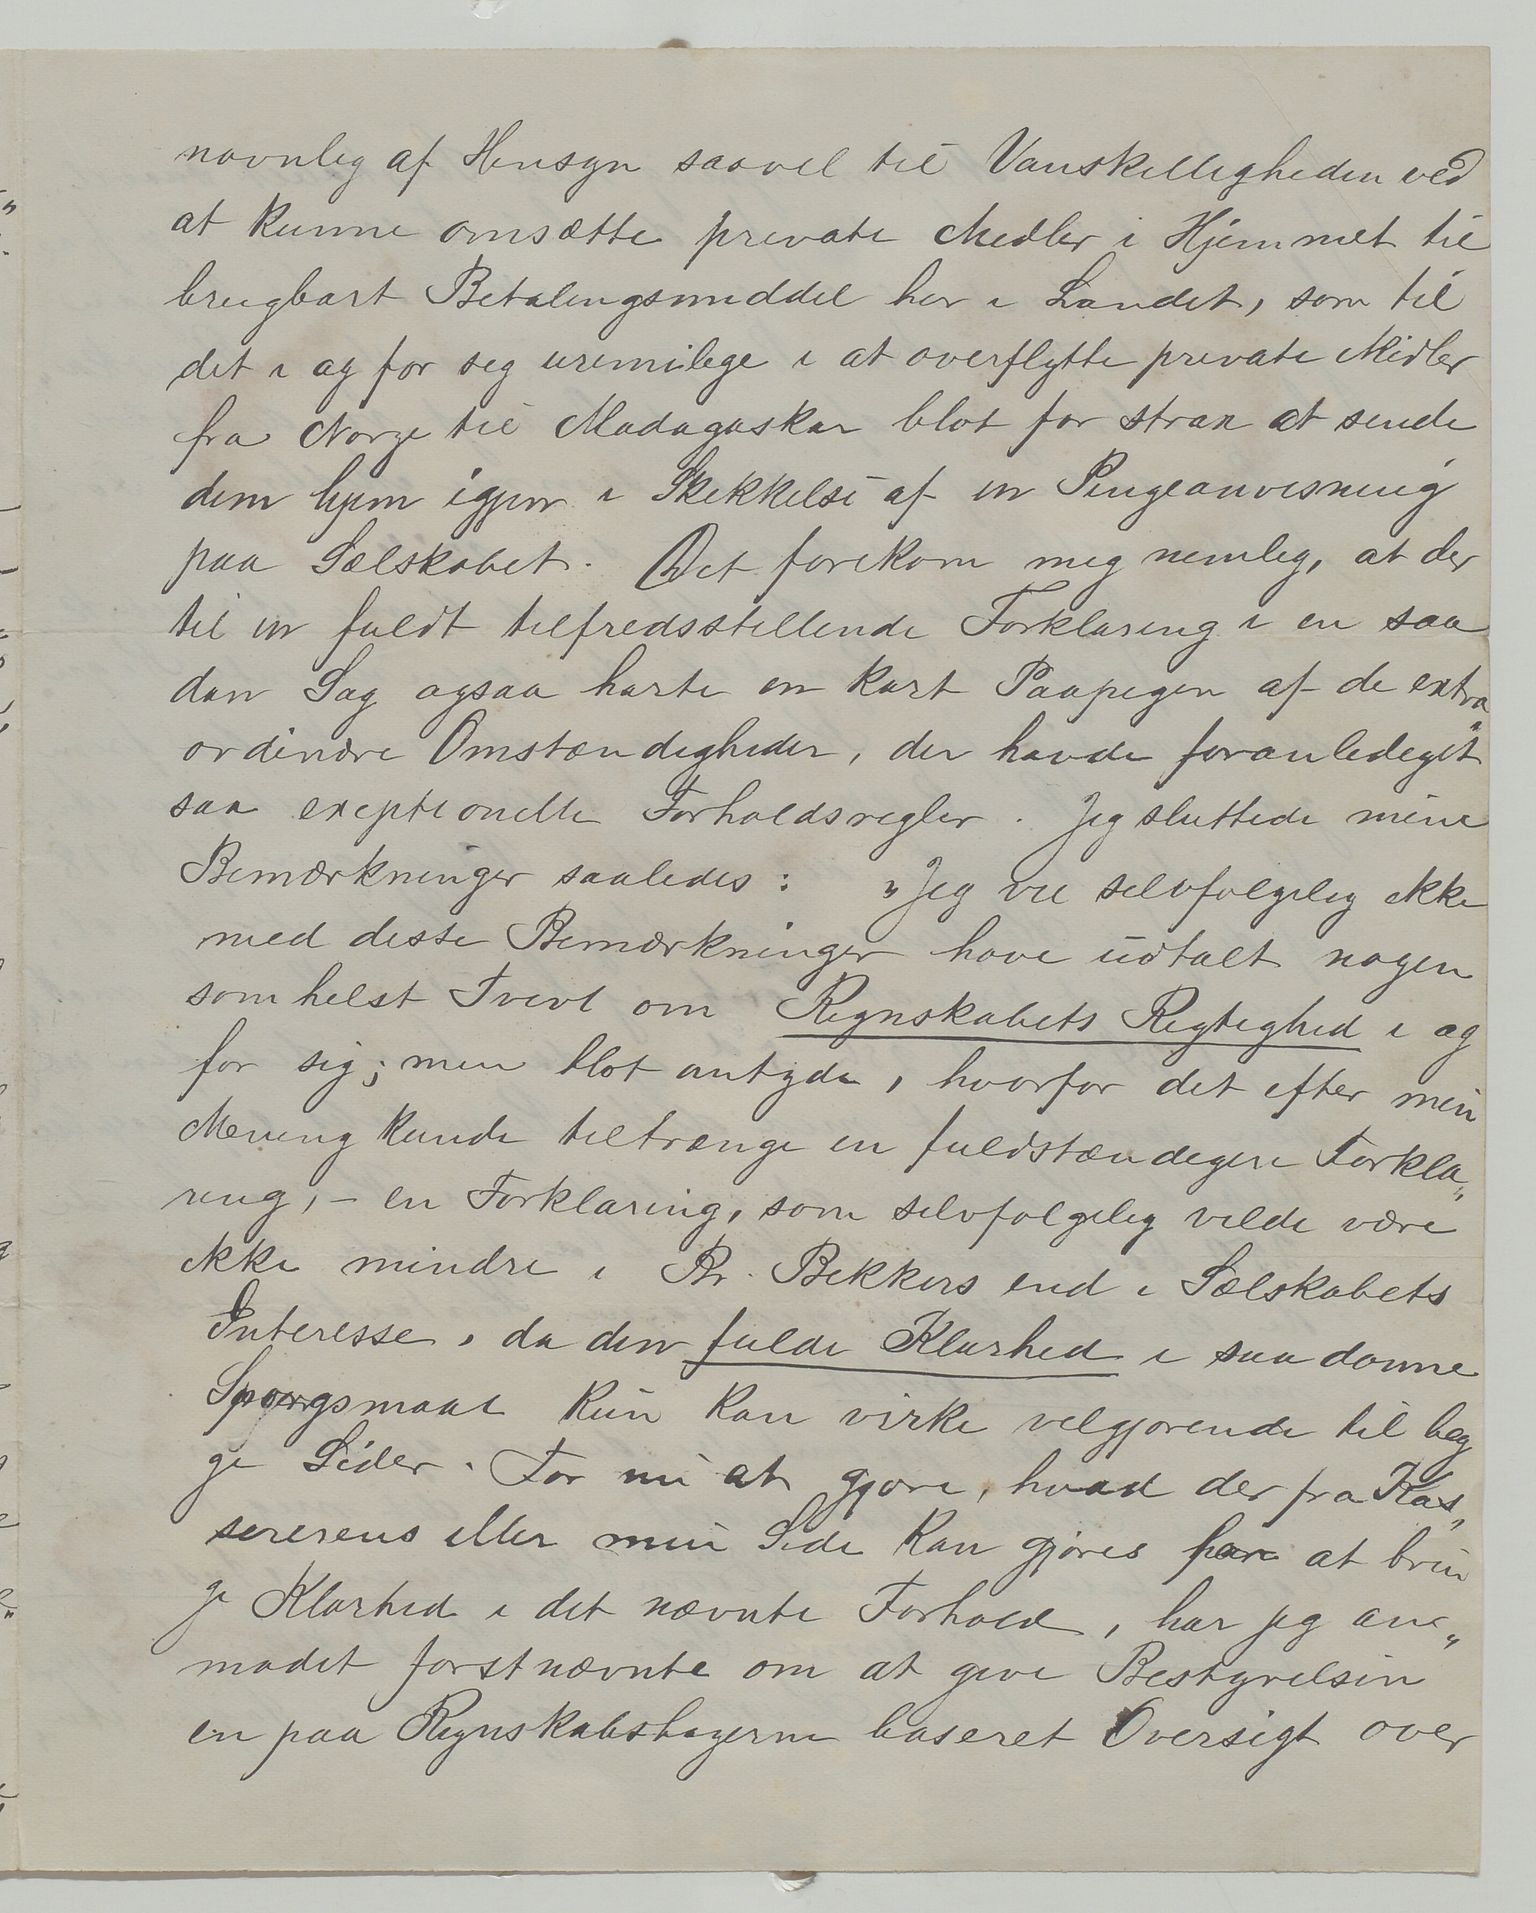 navnlig af Hensyn saavel til Vanskelligheden ved
at kunne omsætte private Midler i Hjemmet til
brugbart Betalingsmiddel her i Landet, som til
det i og for sig urimilige i at overflytte private Midler
fra Norge til Madagaskar blot for strax at sende
dem hjem igjen i Skikkelse af en Pengeanvisning
paa Selskabet. Det forekom mig nemlig, at der
til en fuldt tilfredsstillende Forklaring i en saa
dan Sag ogsaa hørte en kort Paapegen af de extra„
ordinære Omstændigheder, der havde foranlediget
saa exeptionelle Forholdsregler. Jeg sluttede mine
Bemærkninger saaledes: „Jeg vil selvfølgelig ikke
med disse Bemærkninger have udtalt nogen
somhelst Tvivl om Regnskabets Rigtighed i og
for sig; men blot antyde, hvorfor det efter min
Mening kunde tiltrænge en fuldstændigere Forkla„
ring, – en Forklaring, som selvfølgelig vilde være
ikke mindre i Br. Bekkers end i Selskabets
Interesse, da den fulde Klarhed i saadanne
Spørgsmaal kun kan virke velgjørende til beg
ge Sider. For nu at gjøre, hvad der fra Kas„
sererens eller min Side kan gjøres for at brin
ge Klarhed i det nævnte Forhold, har jeg an„
modet førstnævnte om at give Bestyrelsen
en paa Regnskabsbøgerne baseret Oversigt over